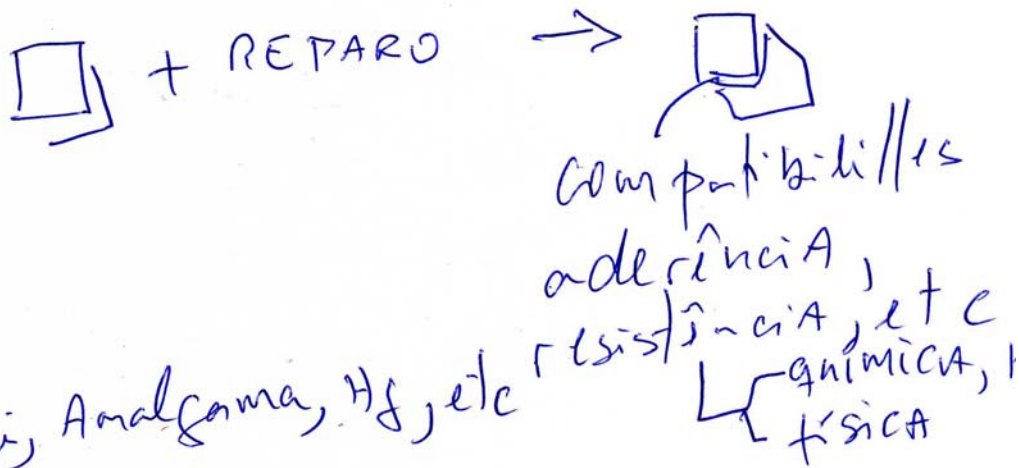 + REPARO
compatibili//es
aderência,
resistência, etc
química,
física
Amalgama, Hg, etc